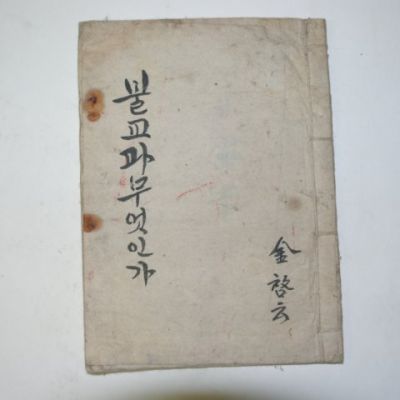 불교과무엇인가
金啓云